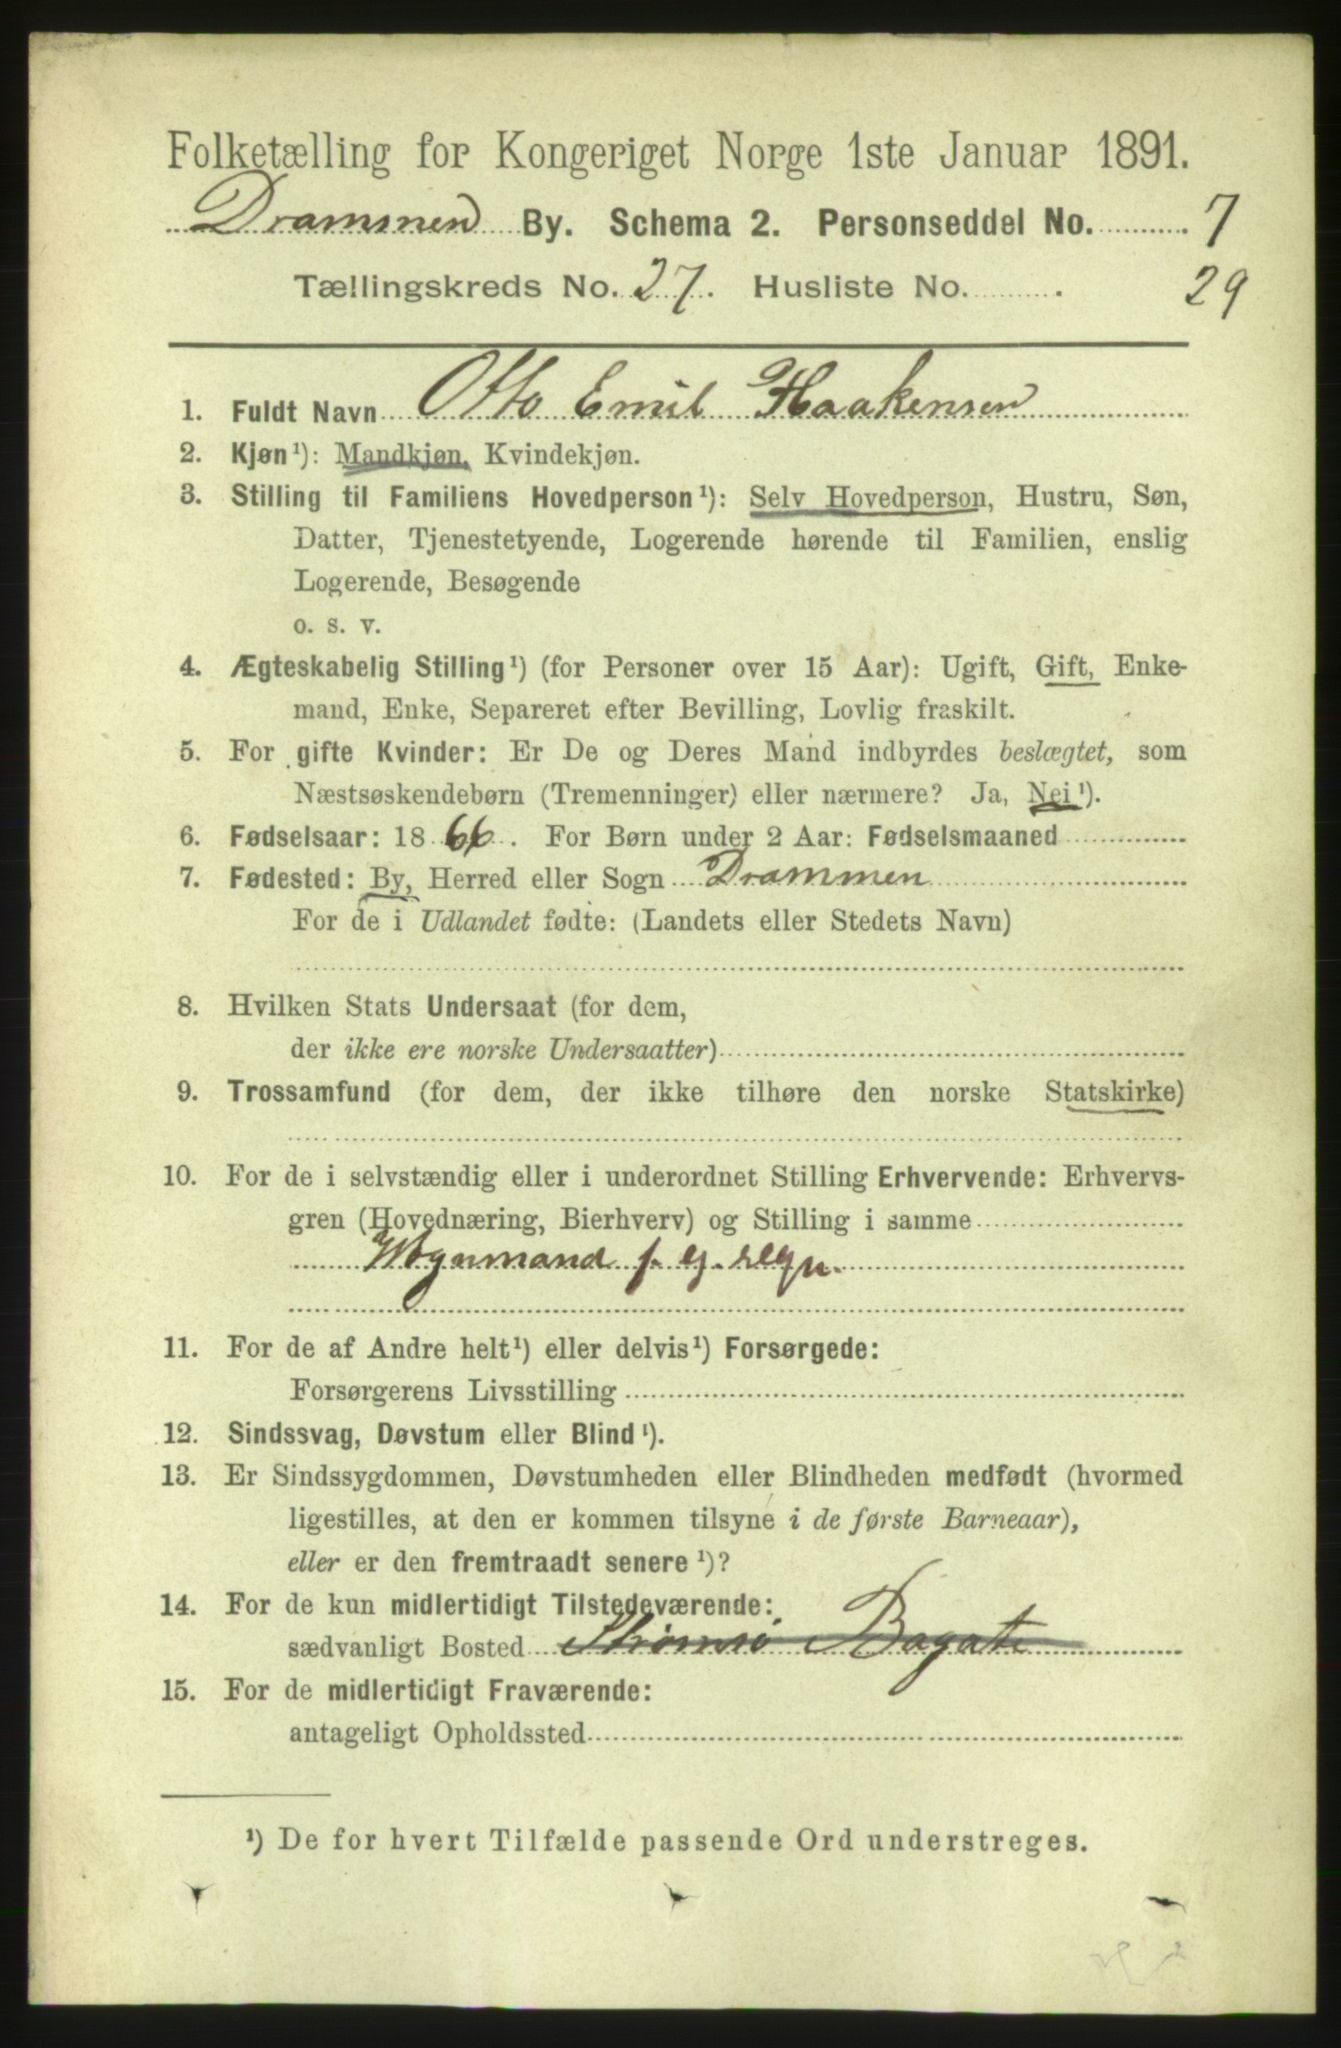 Folketælling for Kongeriget Norge 1ste Januar 1891.
Drammen By. Schema 2. Personseddel No. 7
Tællingskreds No. 27. Husliste No. 29
1. Fuldt Navn Otto Emil Haakensen
2. Kjøn¹): Mandkjøn, Kvindekjøn.
3. Stilling til Familiens Hovedperson¹): Selv Hovedperson, Hustru, Søn,
Datter, Tjenestetyende, Logerende hørende til Familien, enslig
Logerende, Besøgende
o. s. v.
4. Ægteskabelig Stilling¹) (for Personer over 15 Aar): Ugift, Gift, Enke-
mand, Enke, Separeret efter Bevilling, Lovlig fraskilt.
5. For gifte Kvinder: Er De og Deres Mand indbyrdes beslægtet, som
Næstsøskendebørn (Tremenninger) eller nærmere? Ja, Nei¹).
6. Fødselsaar: 1866. For Børn under 2 Aar: Fødselsmaaned
7. Fødested: By, Herred eller Sogn Drammen
For de i Udlandet fødte: (Landets eller Stedets Navn)
8. Hvilken Stats Undersaat (for dem,
der ikke ere norske Undersaatter)
9. Trossamfund (for dem, der ikke tilhøre den norske Statskirke)
10. For de i selvstændig eller i underordnet Stilling Erhvervende: Erhvervs-
gren (Hovednæring, Bierhverv) og Stilling i samme
Vognmand f. eg. regn.
11. For de af Andre helt¹) eller delvis¹) Forsørgede:
Forsørgerens Livsstilling
12. Sindssvag, Døvstum eller Blind¹).
13. Er Sindssygdommen, Døvstumheden eller Blindheden medfødt (hvormed
ligestilles, at den er kommen tilsyne i de første Barneaar),
eller er den fremtraadt senere¹)?
14. For de kun midlertidigt Tilstedeværende:
sædvanligt Bosted Strømsø
15. For de midlertidigt Fraværende:
antageligt Opholdssted
¹) De for hvert Tilfælde passende Ord understreges.